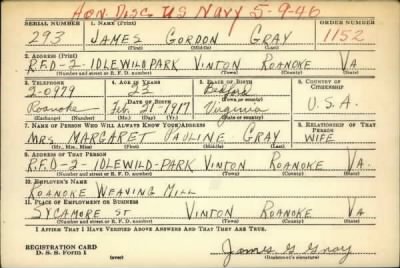 Hon. Disc. US Navy 5-9-46
SERIAL NUMBER 1. NAME (Print) ORDER NUMBER
293 JAMES GORDON GRAY 1152
(First) (Middle) (Last)
2. ADDRESS (Print)
R.F.D-2-IDLEWILDPARK VINTON ROANOKE VA
(Number and street or R. F. D. number) (Town) (County) (State)
3. TELEPHONE 4. AGE IN YEARS 5. PLACE OF BIRTH 6. COUNTRY OF CITIZENSHIP
2-0979 23 Bedford
DATE OF BIRTH (Town or county)
Roanoke Feb. 1917 Virginia U.S.A.
(Exchange) (Number) (Mo.) (Day) (Yr.) (State or country)
7. NAME OF PERSON WHO WILL ALWAYS KNOW YOUR ADDRESS 8. RELATIONSHIP OF THAT PERSON
MRS MARGARET PAULINE GRAY WIFE
(Mr., Mrs., Miss) (First) (Middle) (Last)
9. ADDRESS OF THAT PERSON
R.F.D-2-IDLEWILD-PARK VINTON ROANOKE VA.
(Number and street or R. F. D. number) (Town) (County) (State)
10. EMPLOYER'S NAME
ROANOKE WEAVING MILL
11. PLACE OF EMPLOYMENT OR BUSINESS
SYCAMORE ST VINTON ROANOKE VA
(Number and street or R. F. D. number) (Town) (County) (State)
I AFFIRM THAT I HAVE VERIFIED ABOVE ANSWERS AND THAT THEY ARE TRUE.
REGISTRATION CARD
D. S. S. Form 1 (over) James G Gray
(Registrant's signature)